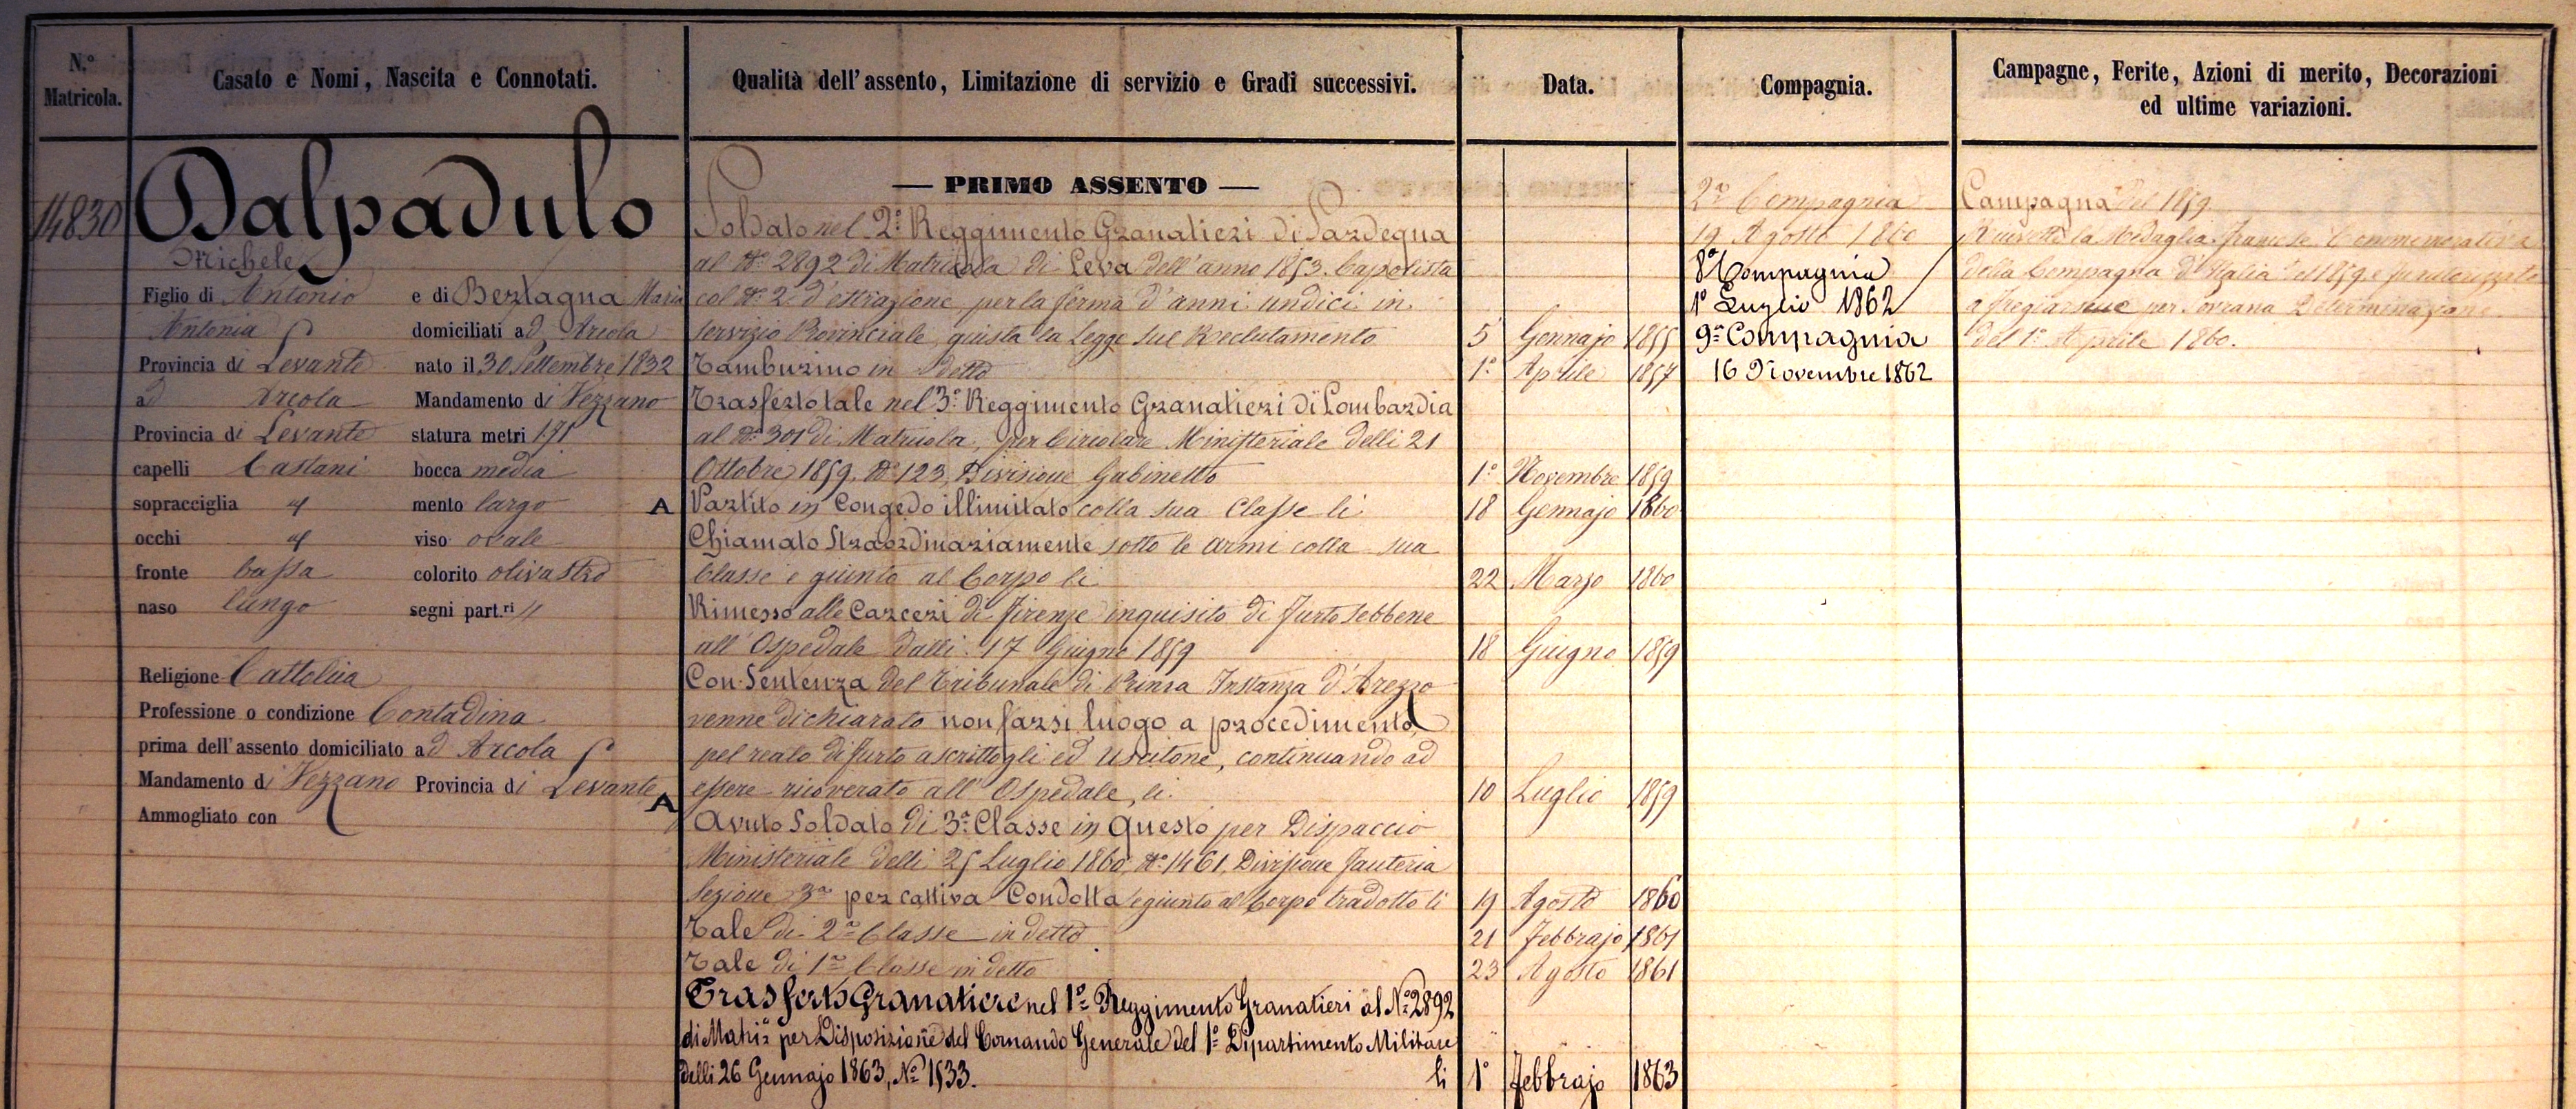 N.º Matricola.
Casato e Nomi, Nascita e Connotati.
Qualità dell'assento, Limitazione di servizio e Gradi successivi.
Data.
Compagnia.
Campagne, Ferite, Azioni di merito, Decorazioni
ed ultime variazioni.
14830
Dalpadulo
Michele
Figlio di Antonio e di Bertagna Maria
Antonia domiciliati ad Arcola
Provincia di Levante nato il 30 Settembre 1832
ad Arcola Mandamento di Vezzano
Provincia di Levante statura metri 1.71
capelli Castani bocca media
sopracciglia mento largo
occhi viso ovale
fronte bassa colorito olivastro
naso lungo segni part.ri //
Religione Cattolica
Professione o condizione Contadina
prima dell'assento domiciliato ad Arcola
Mandamento di Vezzano Provincia di Levante
Ammogliato con
— PRIMO ASSENTO —
Soldato nel 2º Reggimento Granatieri di Sardegna
al Nº 2892 di Matricola di Leva dell'anno 1853. Capolista
col Nº 2 d'estrazione per la ferma d'anni undici in
servizio Provinciale, giusta la Legge sul Reclutamento 5 Gennajo 1855
Tamburino in detto 1º Aprile 1857
Trasferto tale nel 3º Reggimento Granatieri di Lombardia
al Nº 301 di Matricola, per Circolare Ministeriale delli 21
Ottobre 1859, Nº 123, Divisione Gabinetto 1º Novembre 1859
A Partito in Congedo illimitato colla sua Classe li 18 Gennajo 1860
Chiamato Straordinariamente sotto le armi colla sua
Classe e giunto al Corpo li 22 Marzo 1860
Rimesso alle Carceri di Firenze inquisito di furto sebbene
all'Ospedale dalli 17 Giugno 1859 18 Giugno 1859
Con Sentenza del Tribunale di Prima Instanza d'Arezzo
venne dichiarato non farsi luogo a procedimento
pel reato di furto ascrittogli ed uscitone, continuando ad
essere ricoverato all'Ospedale, li 10 Luglio 1859
A Avuto Soldato di 3ª Classe in questo per Dispaccio
Ministeriale delli 25 Luglio 1860, Nº 1461, Divisione Fanteria
Sezione 3ª per cattiva Condotta e giunto al Corpo tradotto li 19 Agosto 1860
Tale di 2ª Classe in detto 21 Febbrajo 1861
Tale di 1ª Classe in detto 23 Agosto 1861
Trasferto Granatiere nel 1º Reggimento Granatieri al Nº 2892
di Matrª per Disposizione del Comando Generale del 1º Dipartimento Militare
delli 26 Gennajo 1863, Nº 1533. li 1º Febbrajo 1863
2ª Compagnia
19 Agosto 1860
8ª Compagnia
1º Luglio 1862
9ª Compagnia
16 Novembre 1862
Campagna del 1859
Ricevette la Medaglia francese Commemorativa
della Campagna d'Italia del 1859 e fu autorizzato
a fregiarsene per Sovrana Determinazione
del 1º Aprile 1860.